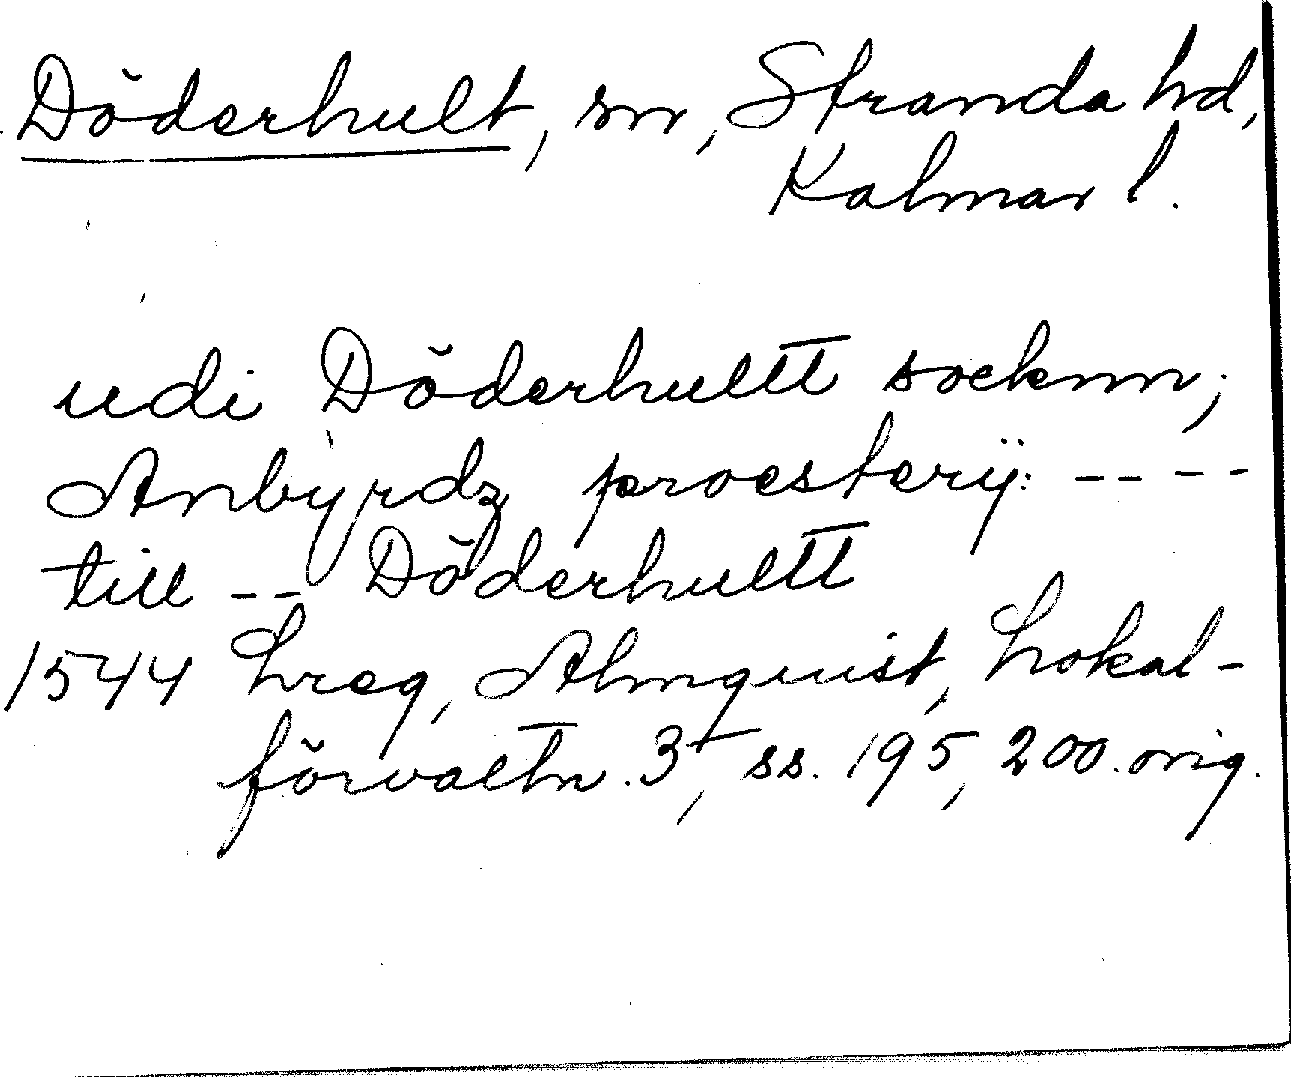 Döderhult, sn, Stranda hd,
Kalmar l.
udi Döderhultt socknn;
Anbyrdz proestery: -- - -
till -- Döderhultt
1544 Lreg, Almquist, Lokal-
förvaltn. 3, ss. 195, 200. orig.